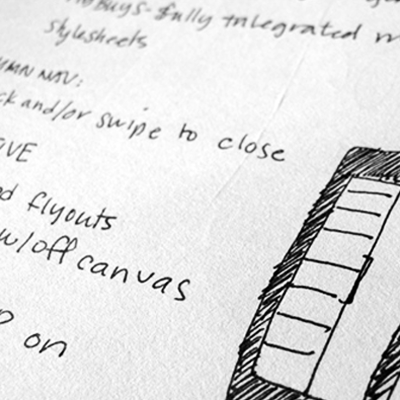 Buys - fully integrated
stylesheets
NAV:
ck and/or swipe to close
IVE
d flyouts
w/off canvas
on